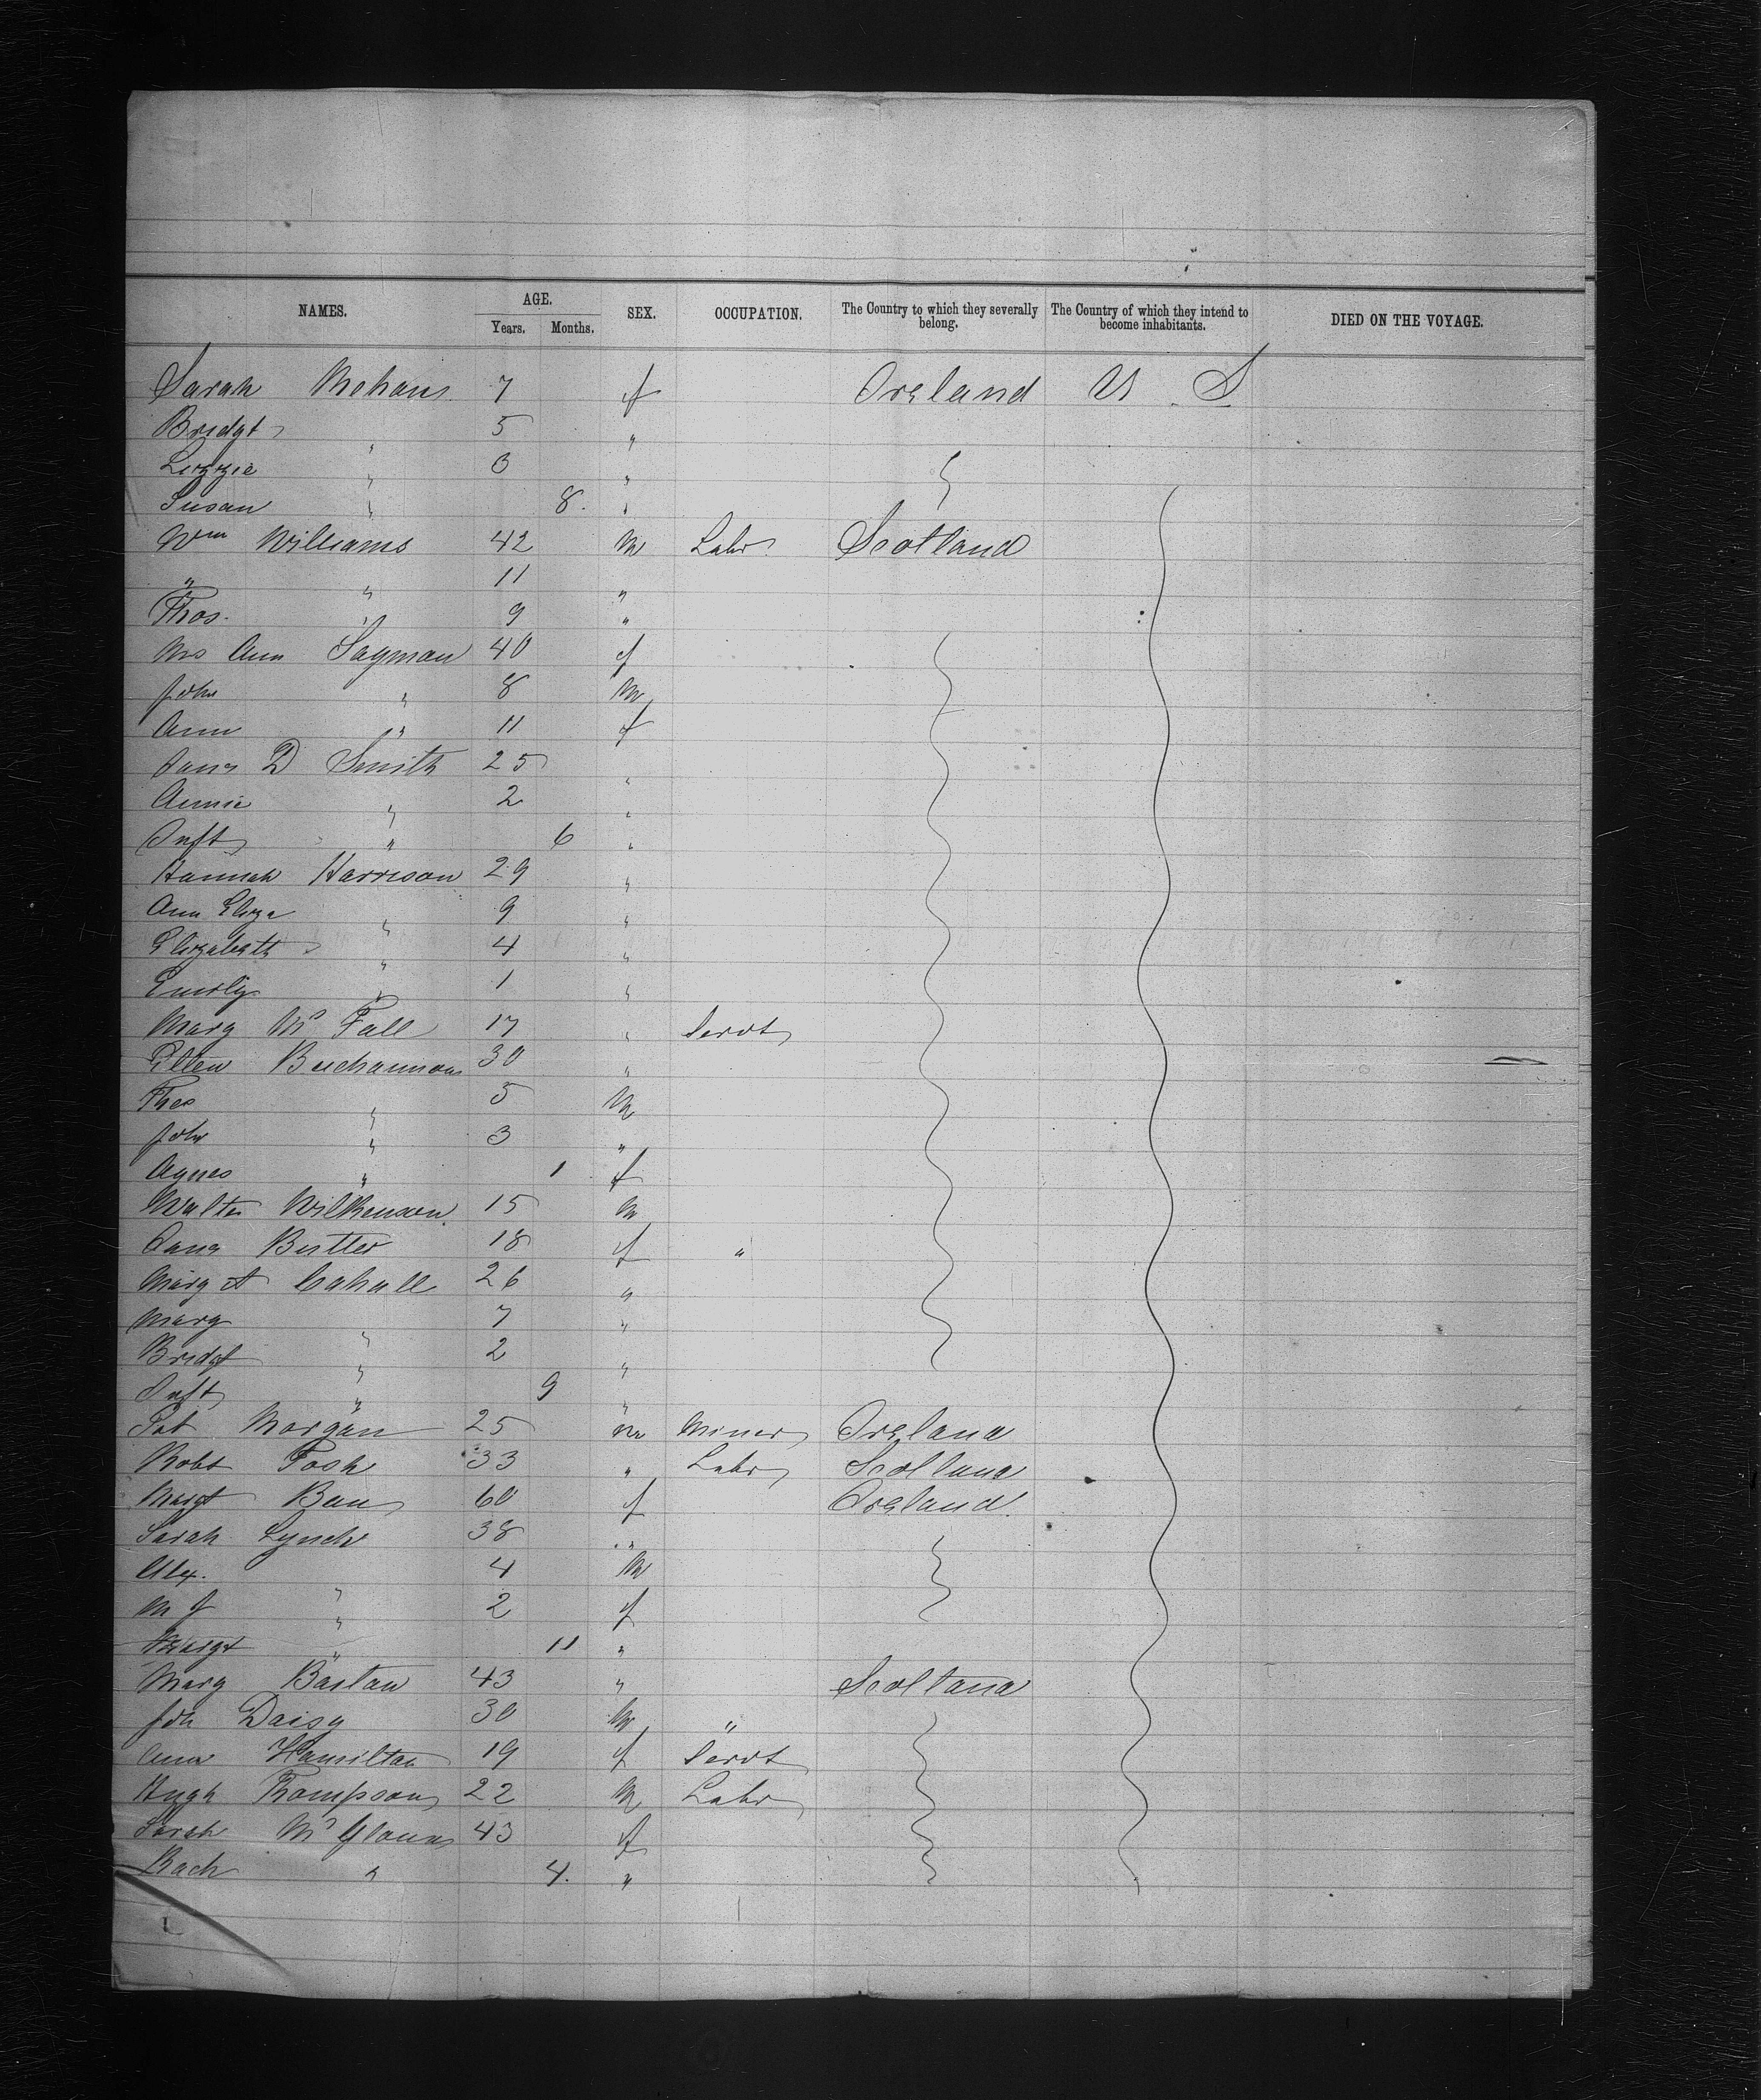 NAMES. AGE. SEX. OCCUPATION. The Country to which they severally belong. The Country of which they intend to become inhabitants. DIED ON THE VOYAGE.
Years. Months.
Sarah Mehans 7 f Ireland U S
Bridgt " 5 "
Lizzie " 3 "
Susan " 8. "
Wm Williams 42 M Labr Scotland
" " 11 "
Thos. " 9 "
Mrs Ann Sayman 40 f
John " 8 M
Ann " 11 f
Jane D Smith 25 "
Annie " 2 "
Inft " 6 "
Hannah Harrison 29 "
Ann Eliza " 9 "
Elizabeth " 4 "
Emily " 1 "
Mary Mc Fall 17 " Servt
Ellen Buchannon 30 "
Thos " 5 M
John " 3 "
Agnes " 1 f
Walter Wilkenson 15 M
Jane Butler 18 f "
Margt Cahall 26 "
Mary " 7 "
Bridgt " 2 "
Inft " 9 "
Pat Morgan 25 M Miner Ireland
Robt Tosh 33 " Labr Scotland
Margt 60 f Ireland
Sarah Lynch 38 "
Alex. " 4 M
M J " 2 f
Margt " 11 "
Mary 43 " Scotland
Jon Daisy 30 M "
Ann Hamilton 19 f Servt
Hugh Thompson 22 M Labr
Sarah 43 f
Rach " 4. "